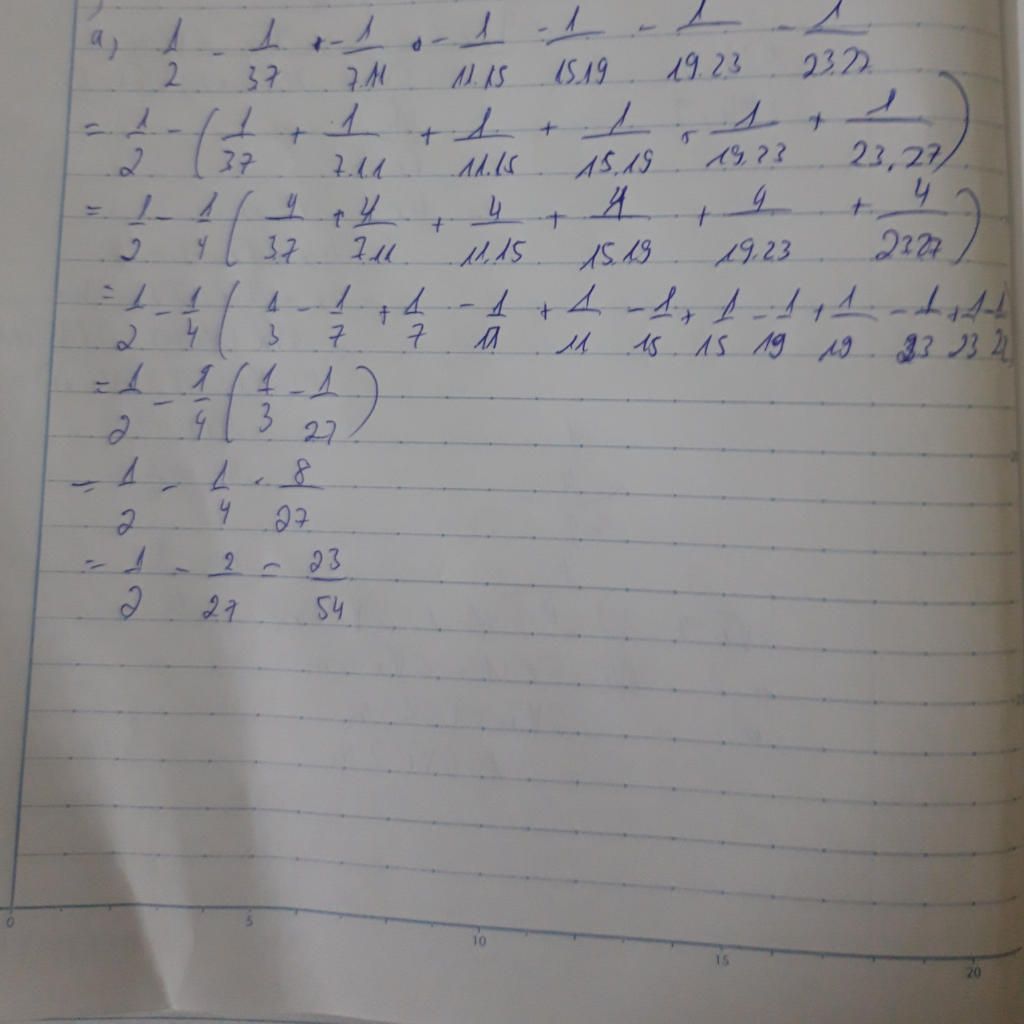 a, 1/2 - 1/37 - 1/7.11 - 1/11.15 - 1/15.19 - 1/19.23 - 1/23.27
= 1/2 - (1/37 + 1/7.11 + 1/11.15 + 1/15.19 + 1/19.23 + 1/23.27)
= 1/2 - 1/4 (4/37 + 4/7.11 + 4/11.15 + 4/15.19 + 4/19.23 + 4/2327)
= 1/2 - 1/4 (1/3 - 1/7 + 1/7 - 1/11 + 1/11 - 1/15 + 1/15 - 1/19 + 1/19 - 1/23 + 1/23 - 1/27)
= 1/2 - 1/4 (1/3 - 1/27)
= 1/2 - 1/4 . 8/27
= 1/2 - 2/27 = 23/54
0 5 10 15 20